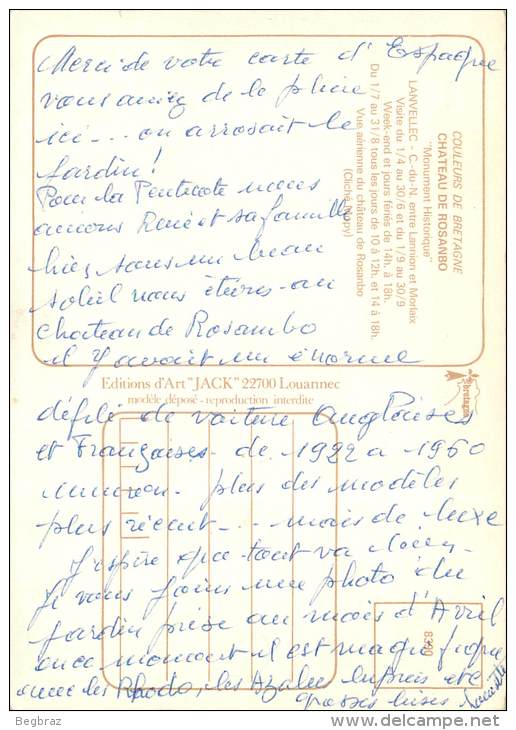 Merci de votre carte d'Espagne
vous aviez de la pluie
ici --- on arrosait le
jardin!
Pour la Pentecote nous
avions René et sa famille
hier sous un beau
soleil nous étions au
chateau de Rosambo
il y avait un énorme
défilé de voiture Anglaises
et Françaises de 1922 a 1960
environ plus des modèles
plus récent --- mais de luxe
J'espère que tout va bien
Je vous joins une photo du
jardin prise au mois d'Avril
en ce moment il est magnifique
avec les Rhodo, les Azalée
grosses bises
COULEURS DE BRETAGNE
CHATEAU DE ROSANBO
"Monument Historique"
LANVELLEC - C.-du-N. entre Lannion et Morlaix
Visite du 1/4 au 30/6 et du 1/9 au 30/9
Week-end et jours fériés de 14h. à 18h.
Du 1/7 au 31/8 tous les jours de 10 à 12h. et 14 à 18h.
Vue aérienne du château de Rosanbo
Editions d'Art "JACK" 22700 Louannec
modèle déposé - reproduction interdite
Bretagne
8390
Begbraz
www.delcampe.net